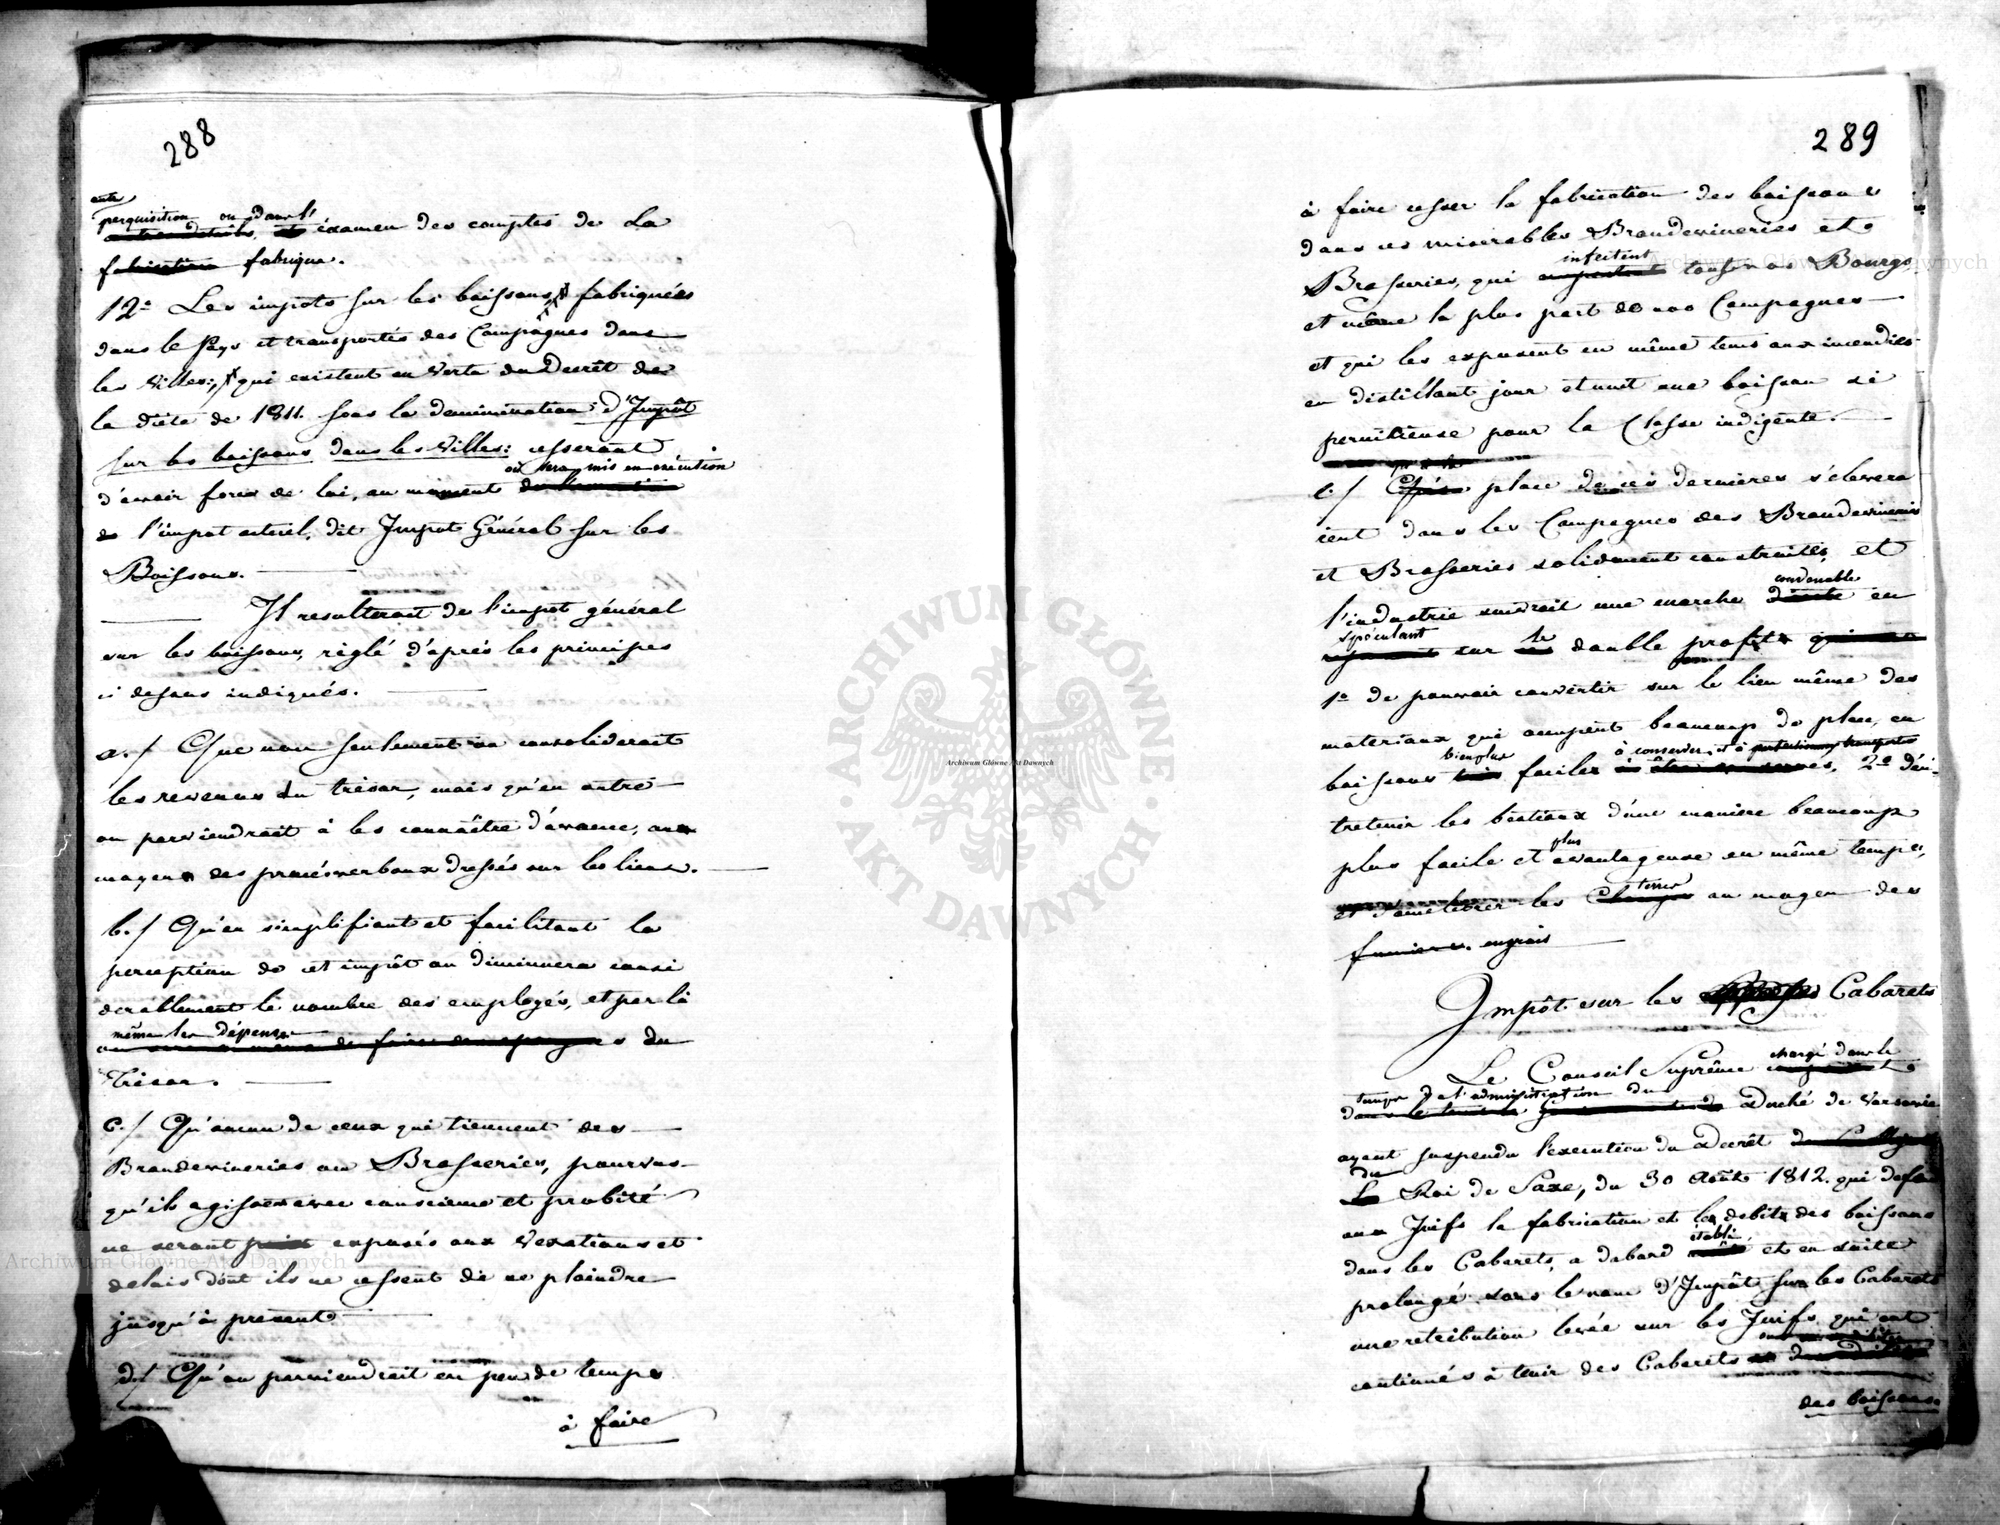 288
perquisition ou dans l'
examen des comptes de La
fabrication fabrique.
12º Les impots sur les boissons, fabriquées
dans le Pays et transportés des Campagnes dans
les Villes, qui existent en vertu du Decrêt de
la diète de 1811. sous la denimination d'Impôt
sur les boissons dans les Villes: cesseront
où sera mis en exécution
d'avoir force de loi, au moment
de l'impot actuel, dit Impot Général sur les
Boissons.
Il resulterait de l'impot général
sur les boissons, règlé d'après les principes
ci dessus indiqués.
a./ Que non seulement on consoliderait
les revenus du trésor, mais qu'en outre
on parviendrait à les connaître d'avance, au
moyen des procésverbaux dressés sur les lieux.
b./ Qu'en simplifiant et facilitant la
perception de cet impôt on diminuera consi
derablement le nombre des employés, et par là
même les dépenses
du
Trésor.
c./ Qu'aucun de ceux qui tiennent des
Brandevineries ou Brasseries, pourvus
qu'ils agissent avec conscience et probité
ne seront point exposés aux vexations et
delais dont ils ne cessent de se plaindre
jusqu'à present
d./ Qu'on parviendrait en peu de temps
à faire
289
à faire cesser la fabrication des boissons
dans ces miserables Brandevineries et
infectent
Brasseries, qui tous nos Bourgs
et même la plus part de nos Campagnes
et qui les exposent en même tems aux incendies
en distillant jour et nuit une boisson si
pernitieuse pour la Classe indigente.
e./ place de ces dernieres s'élevera
ient dans les Campagnes des Brandevineries
et Brasseries solidement construites, et
convenable
l'industrie suivrait une marche directe en
spéculant le
sur double profit
1º de pouvoir convertir sur le lieu même des
materiaux qui occupent beaucoup de place, en
bien plus à conserver et à transporter
boissons faciles 2º d'en-
tretenir les bestiaux d'une maniere beaucoup
plus
plus facile et avantageuse en même temps,
terres
et d'améliorer les Champs au moyen des
engrais
Impôt sur les Cabarets
chargé dans le
Le Conseil Suprême
temps de l'administration du
Duché de Varsovie
ayant suspendu l'execution du Decrêt
du
Roi de Saxe, du 30 Août 1812. qui defend
aux Juifs la fabrication et le debit des boissons
établi
dans les Cabarets, a dabord et en suite
prolongé sous le nom d'Impôt sur les Cabarets
une retribution levée sur les Juifs qui ont
continués à tenir des Cabarets
des boissons.
Archiwum Główne Akt Dawnych
ARCHIWUM GŁÓWNE
AKT DAWNYCH